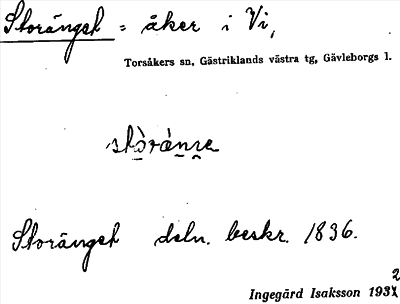 Storänget = åker i Vi,
Torsåkers sn, Gästriklands västra tg, Gävleborgs l.
Storänget deln. beskr. 1836.
Ingegärd Isaksson 1932